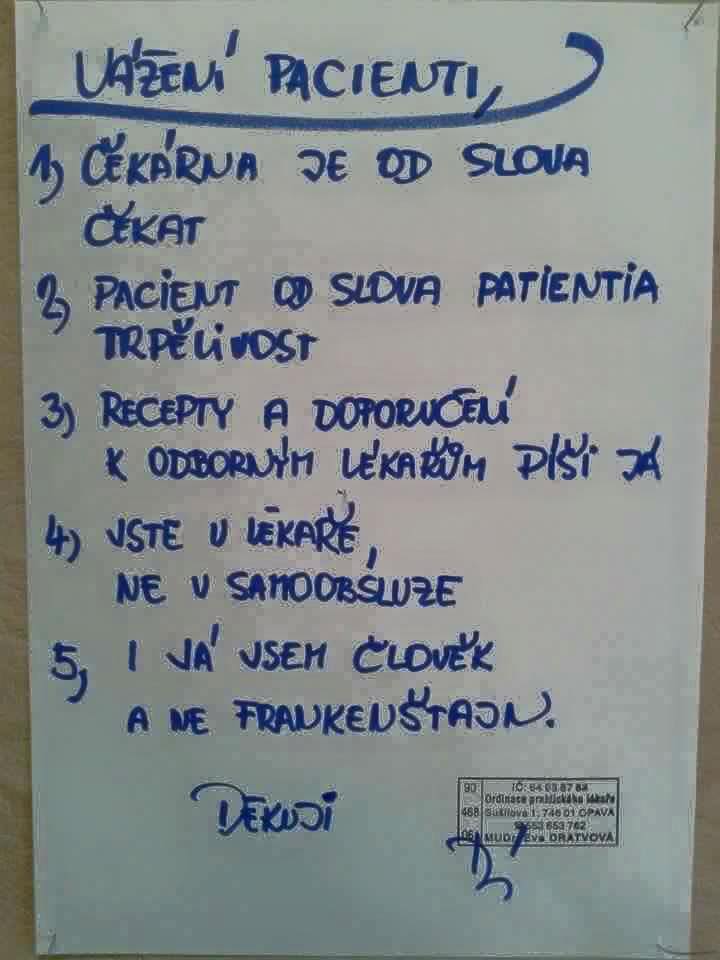 VÁŽENÍ PACIENTI,
1) ČEKÁRNA JE OD SLOVA
ČEKAT
2) PACIENT OD SLOVA PATIENTIA
TRPĚLIVOST
3) RECEPTY A DOPORUČENÍ
K ODBORNÝM LÉKAŘŮM PÍŠI JÁ
4) JSTE U LÉKAŘE,
NE V SAMOOBSLUZE
5) I JÁ JSEM ČLOVĚK
A NE FRANKENŠTAJN.
DĚKUJI
90
468
06
IČ: 64 03 87 84
Ordinace praktického lékaře
Sušilova 1, 746 01 OPAVA
553 653 762
MUDr. Eva DRATVOVÁ